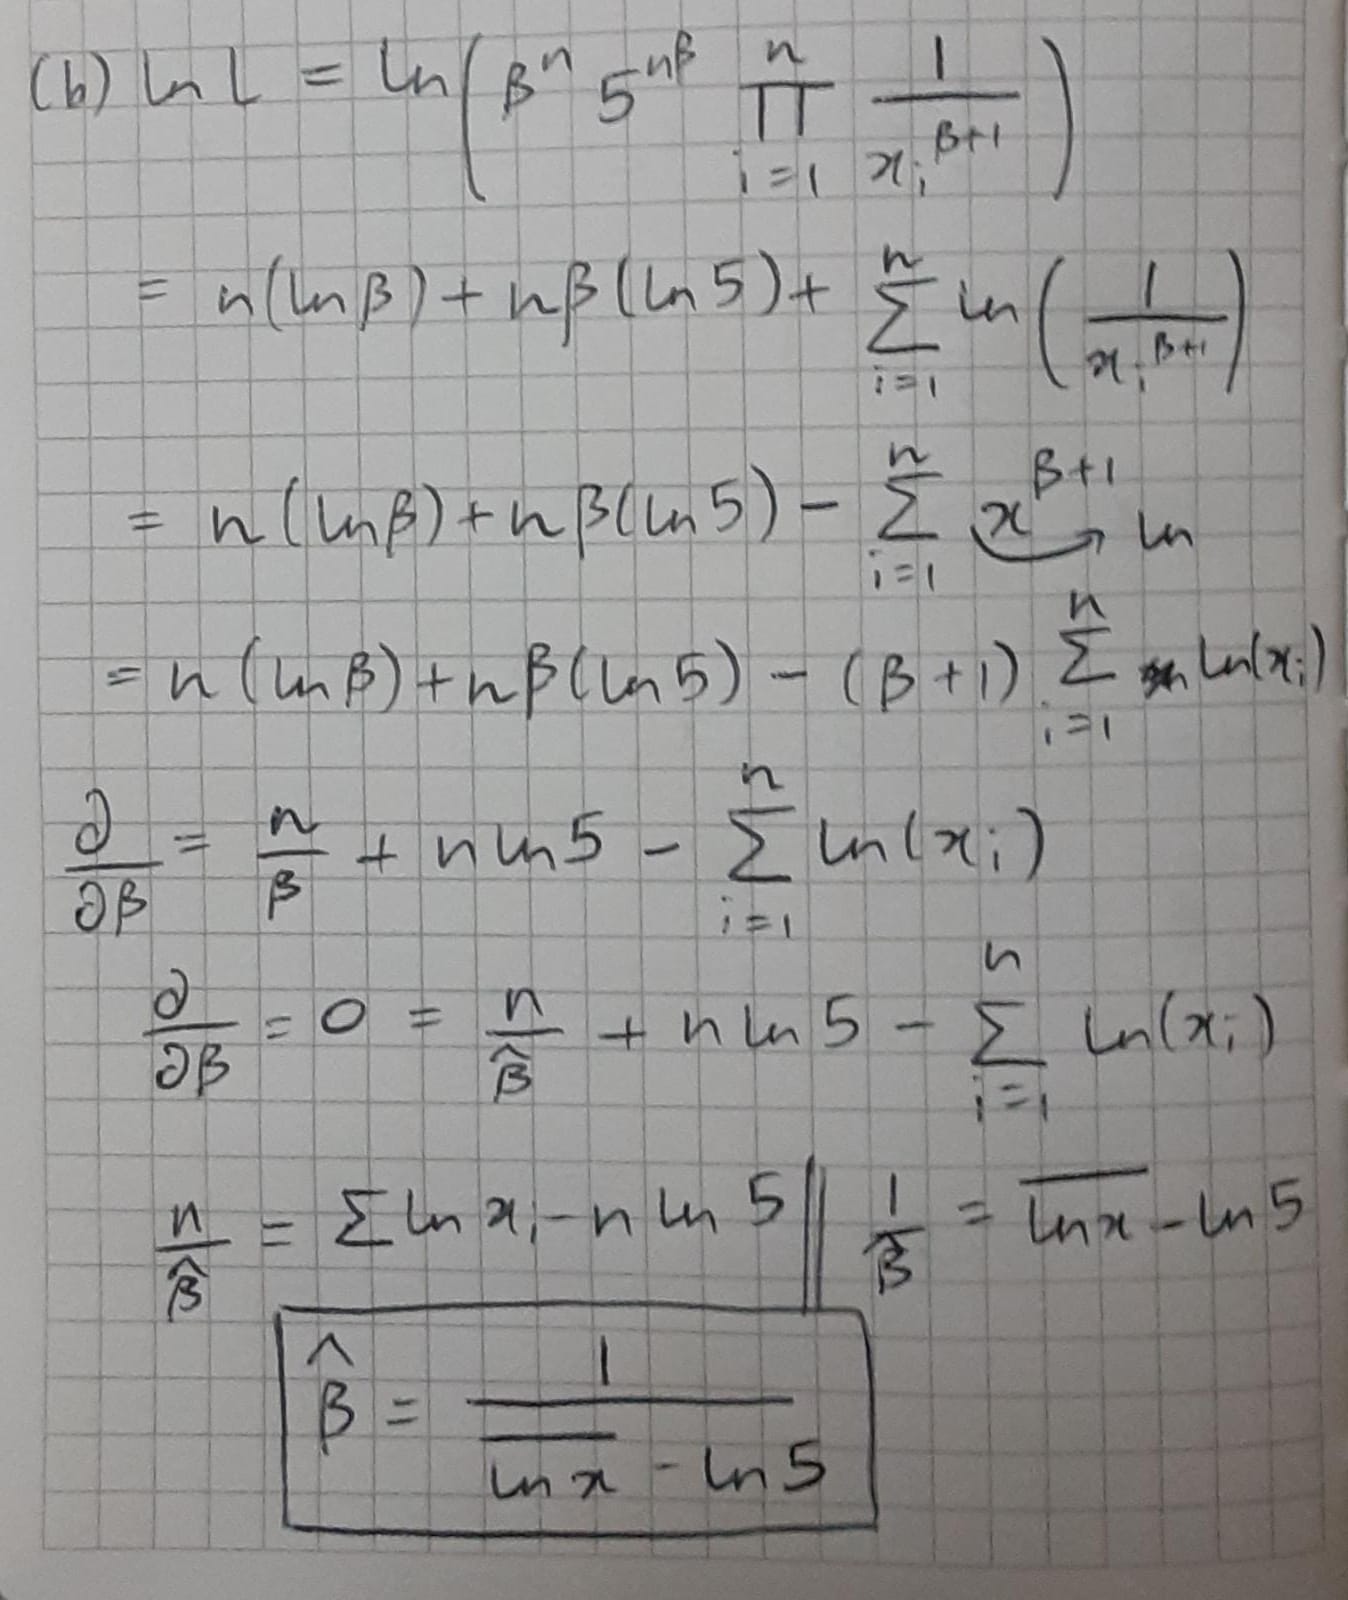 (b) ln L = ln( β^n 5^{nβ} ∏_{i=1}^{n} 1/x_i^{β+1} )
= n(ln β) + nβ(ln 5) + ∑_{i=1}^{n} ln( 1/x_i^{β+1} )
= n(ln β) + nβ(ln 5) − ∑_{i=1}^{n} x^{β+1} → ln
= n(ln β) + nβ(ln 5) − (β+1) ∑_{i=1}^{n} ln(x_i)
∂/∂β = n/β + n ln 5 − ∑_{i=1}^{n} ln(x_i)
∂/∂β = 0 = n/β̂ + n ln 5 − ∑_{i=1}^{n} ln(x_i)
n/β̂ = ∑ ln x_i − n ln 5 || 1/β̂ = \overline{ln x} − ln 5
β̂ = 1/(\overline{ln x} − ln 5)